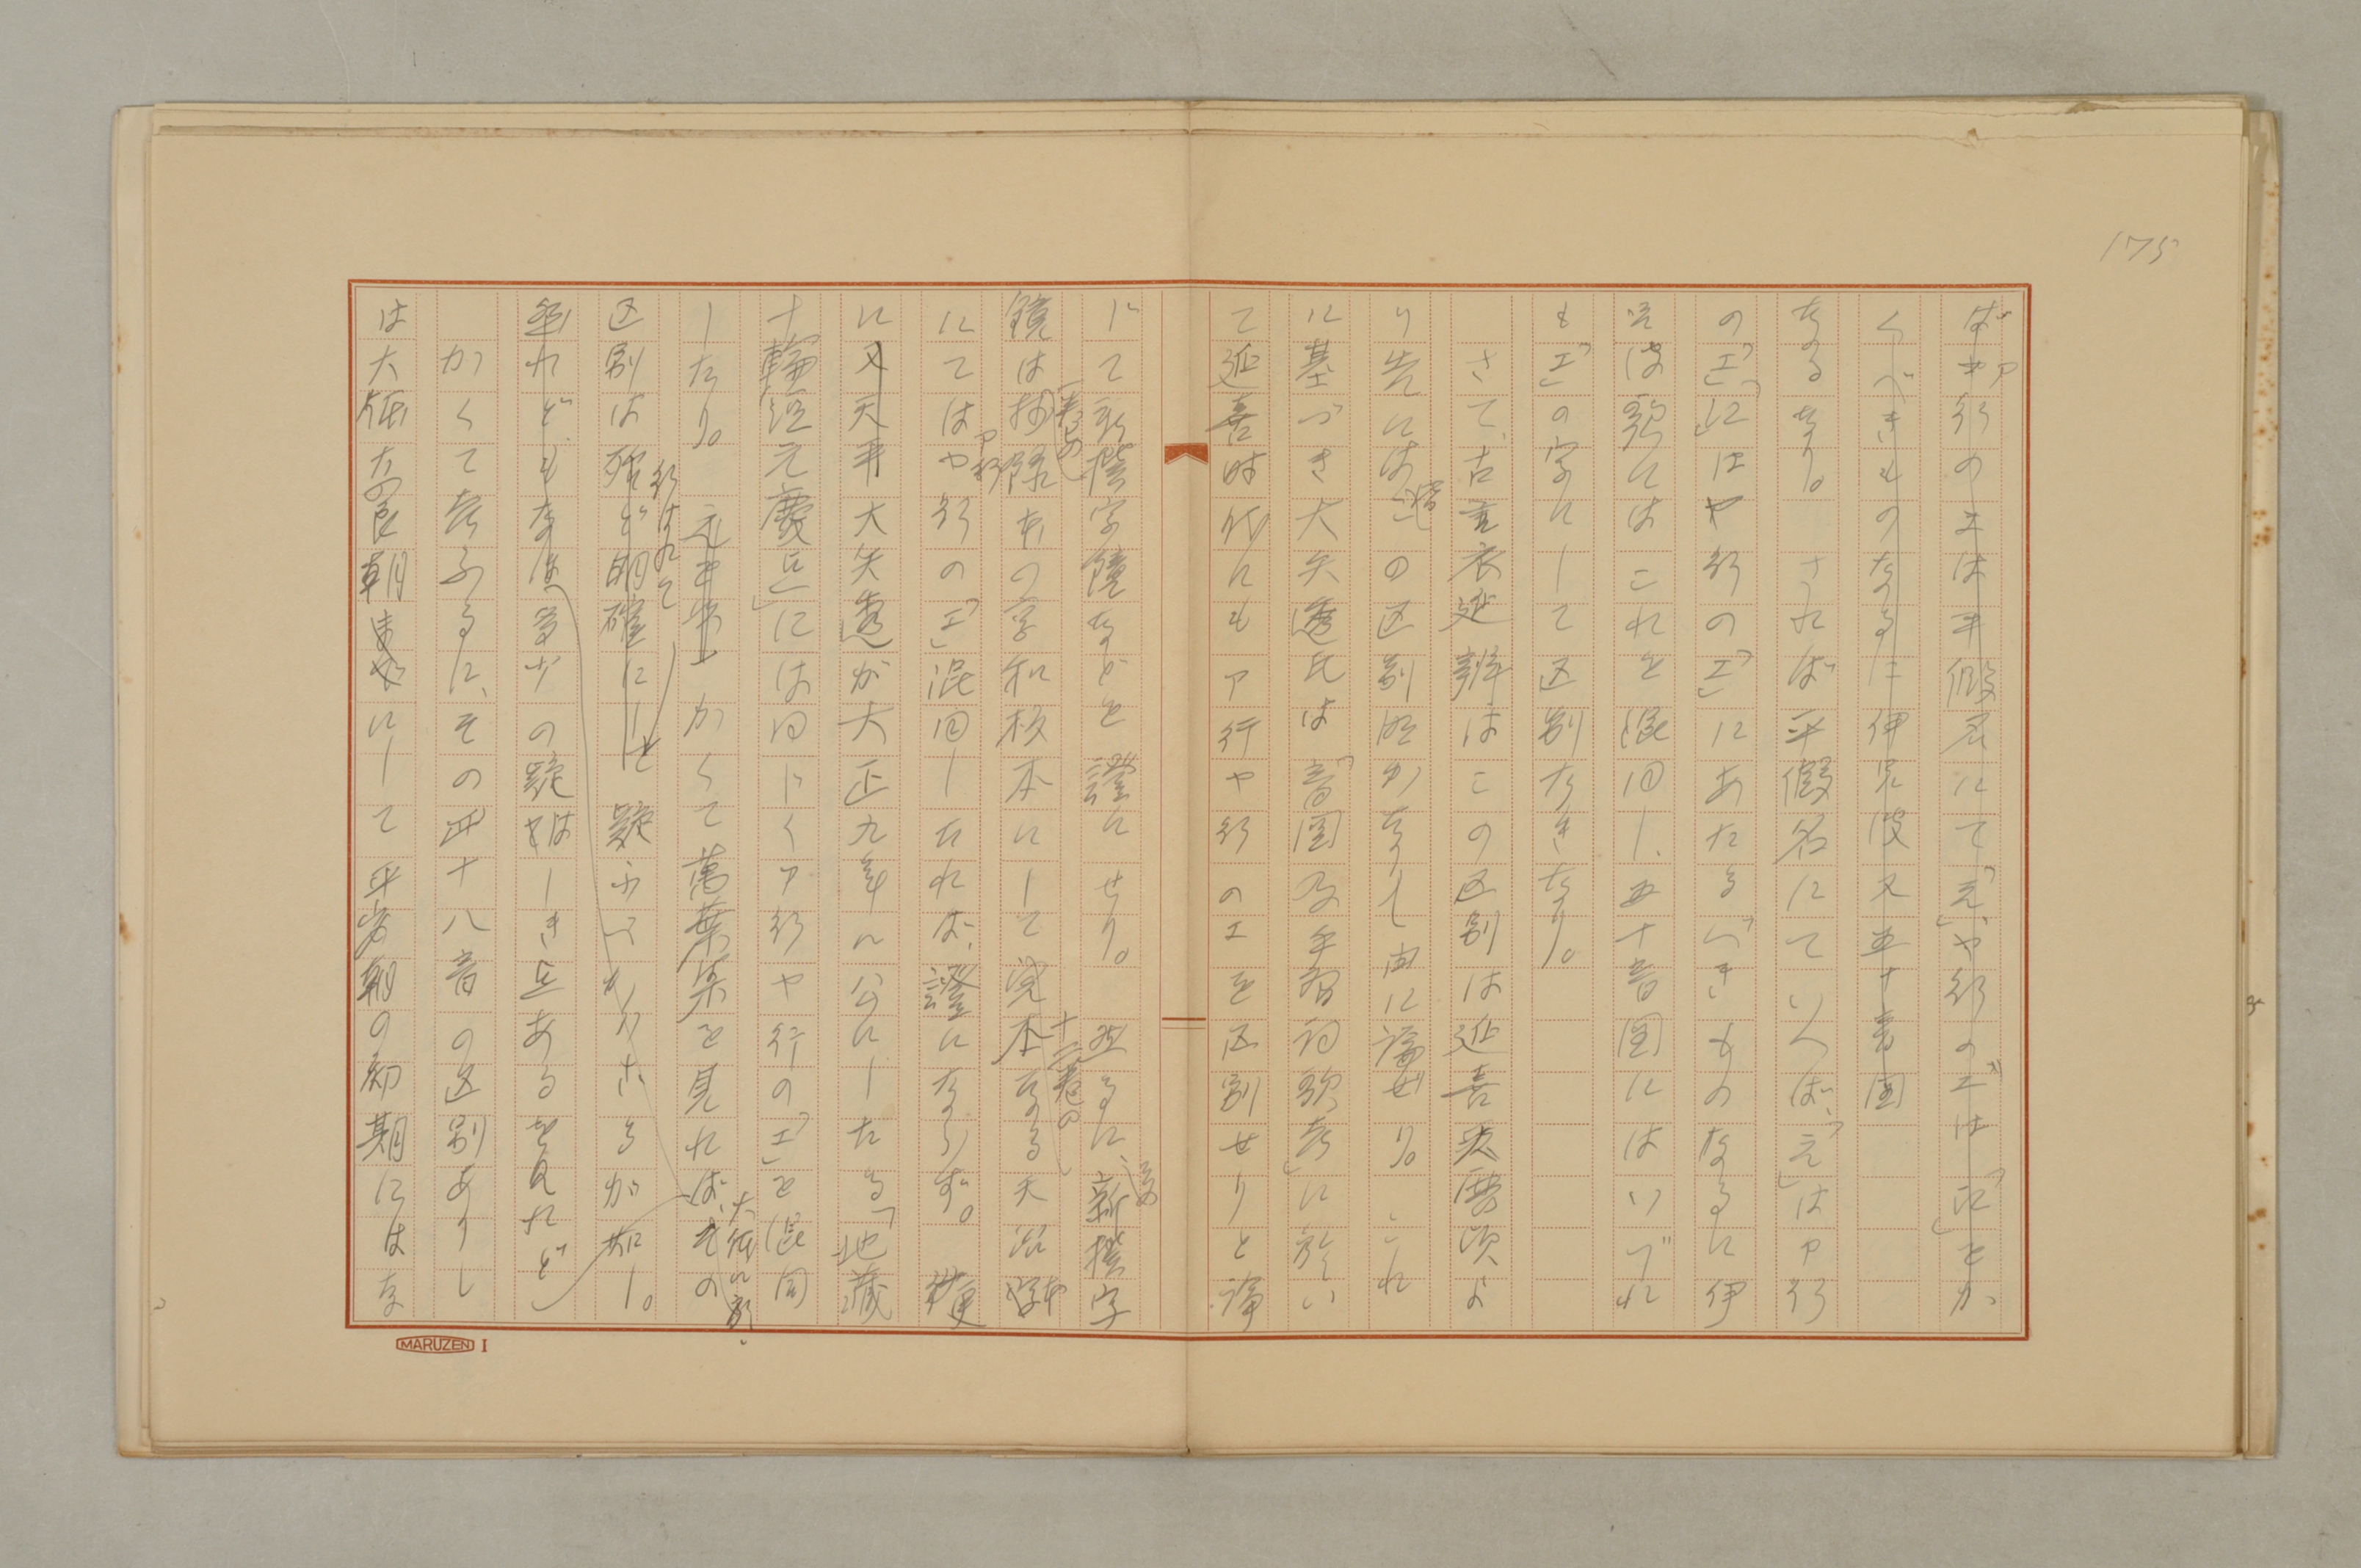 175
ばア行のエは平假名にて「え」、や行のエは「江」とか
くべきものなるに伊呂波又五十音図
なるなり。されば平假名にていへば、「え」はア行
の「エ」「江」はや行の「エ」にあたるべきものなるに伊
呂波歌にはこれを混同し、五十音図にはいづれ
も「エ」の字にして区別なきなり。
さて、古言衣延辨はこの区別は延喜天暦頃よ
り先には の区別明かなりし由に論ぜり。これ
に基づき大矢透氏は「音図及手習詞歌考」に於い
て延喜時代にもア行や行のエを区別せりと論
じて新撰字鏡などを證にせり。然るに、新撰字
鏡は抄録本の享和校本にして完本なる天治本
十二巻の
にてはア行や行の「エ」混同したれば、證にならず。更
に又天平大矢透が大正九年に公にしたる「地蔵
十輪経元慶点」には同じくア行や行の「エ」を混同
したり。かくて萬葉集を見れば、その
大体に於
区別は殆ど明確にして疑ふべからざるが如し。
行はれて
率れどもなほ多少の疑はしき点あるを見れど
かくて考ふるに、その四十八音の区別ありし
は大体奈良朝までにして平安朝の初期にはな
MARUZEN I